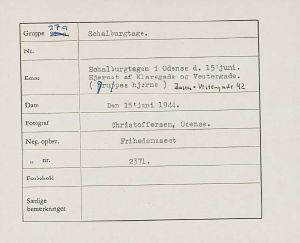 Gruppe 37a Schalburgtage.
Nr.
Emne Schalburgtagen i Odense d. 15'juni.
Hjørnet af Klaregade og Vestergade.
( Gruppes hjørne ) Vestergade 42
Dato Den 15'juni 1944.
Fotograf Christoffersen, Odense.
Neg. opbev. Frihedsmuseet
„ nr. 2371.
Forbehold
Særlige
bemærkninger